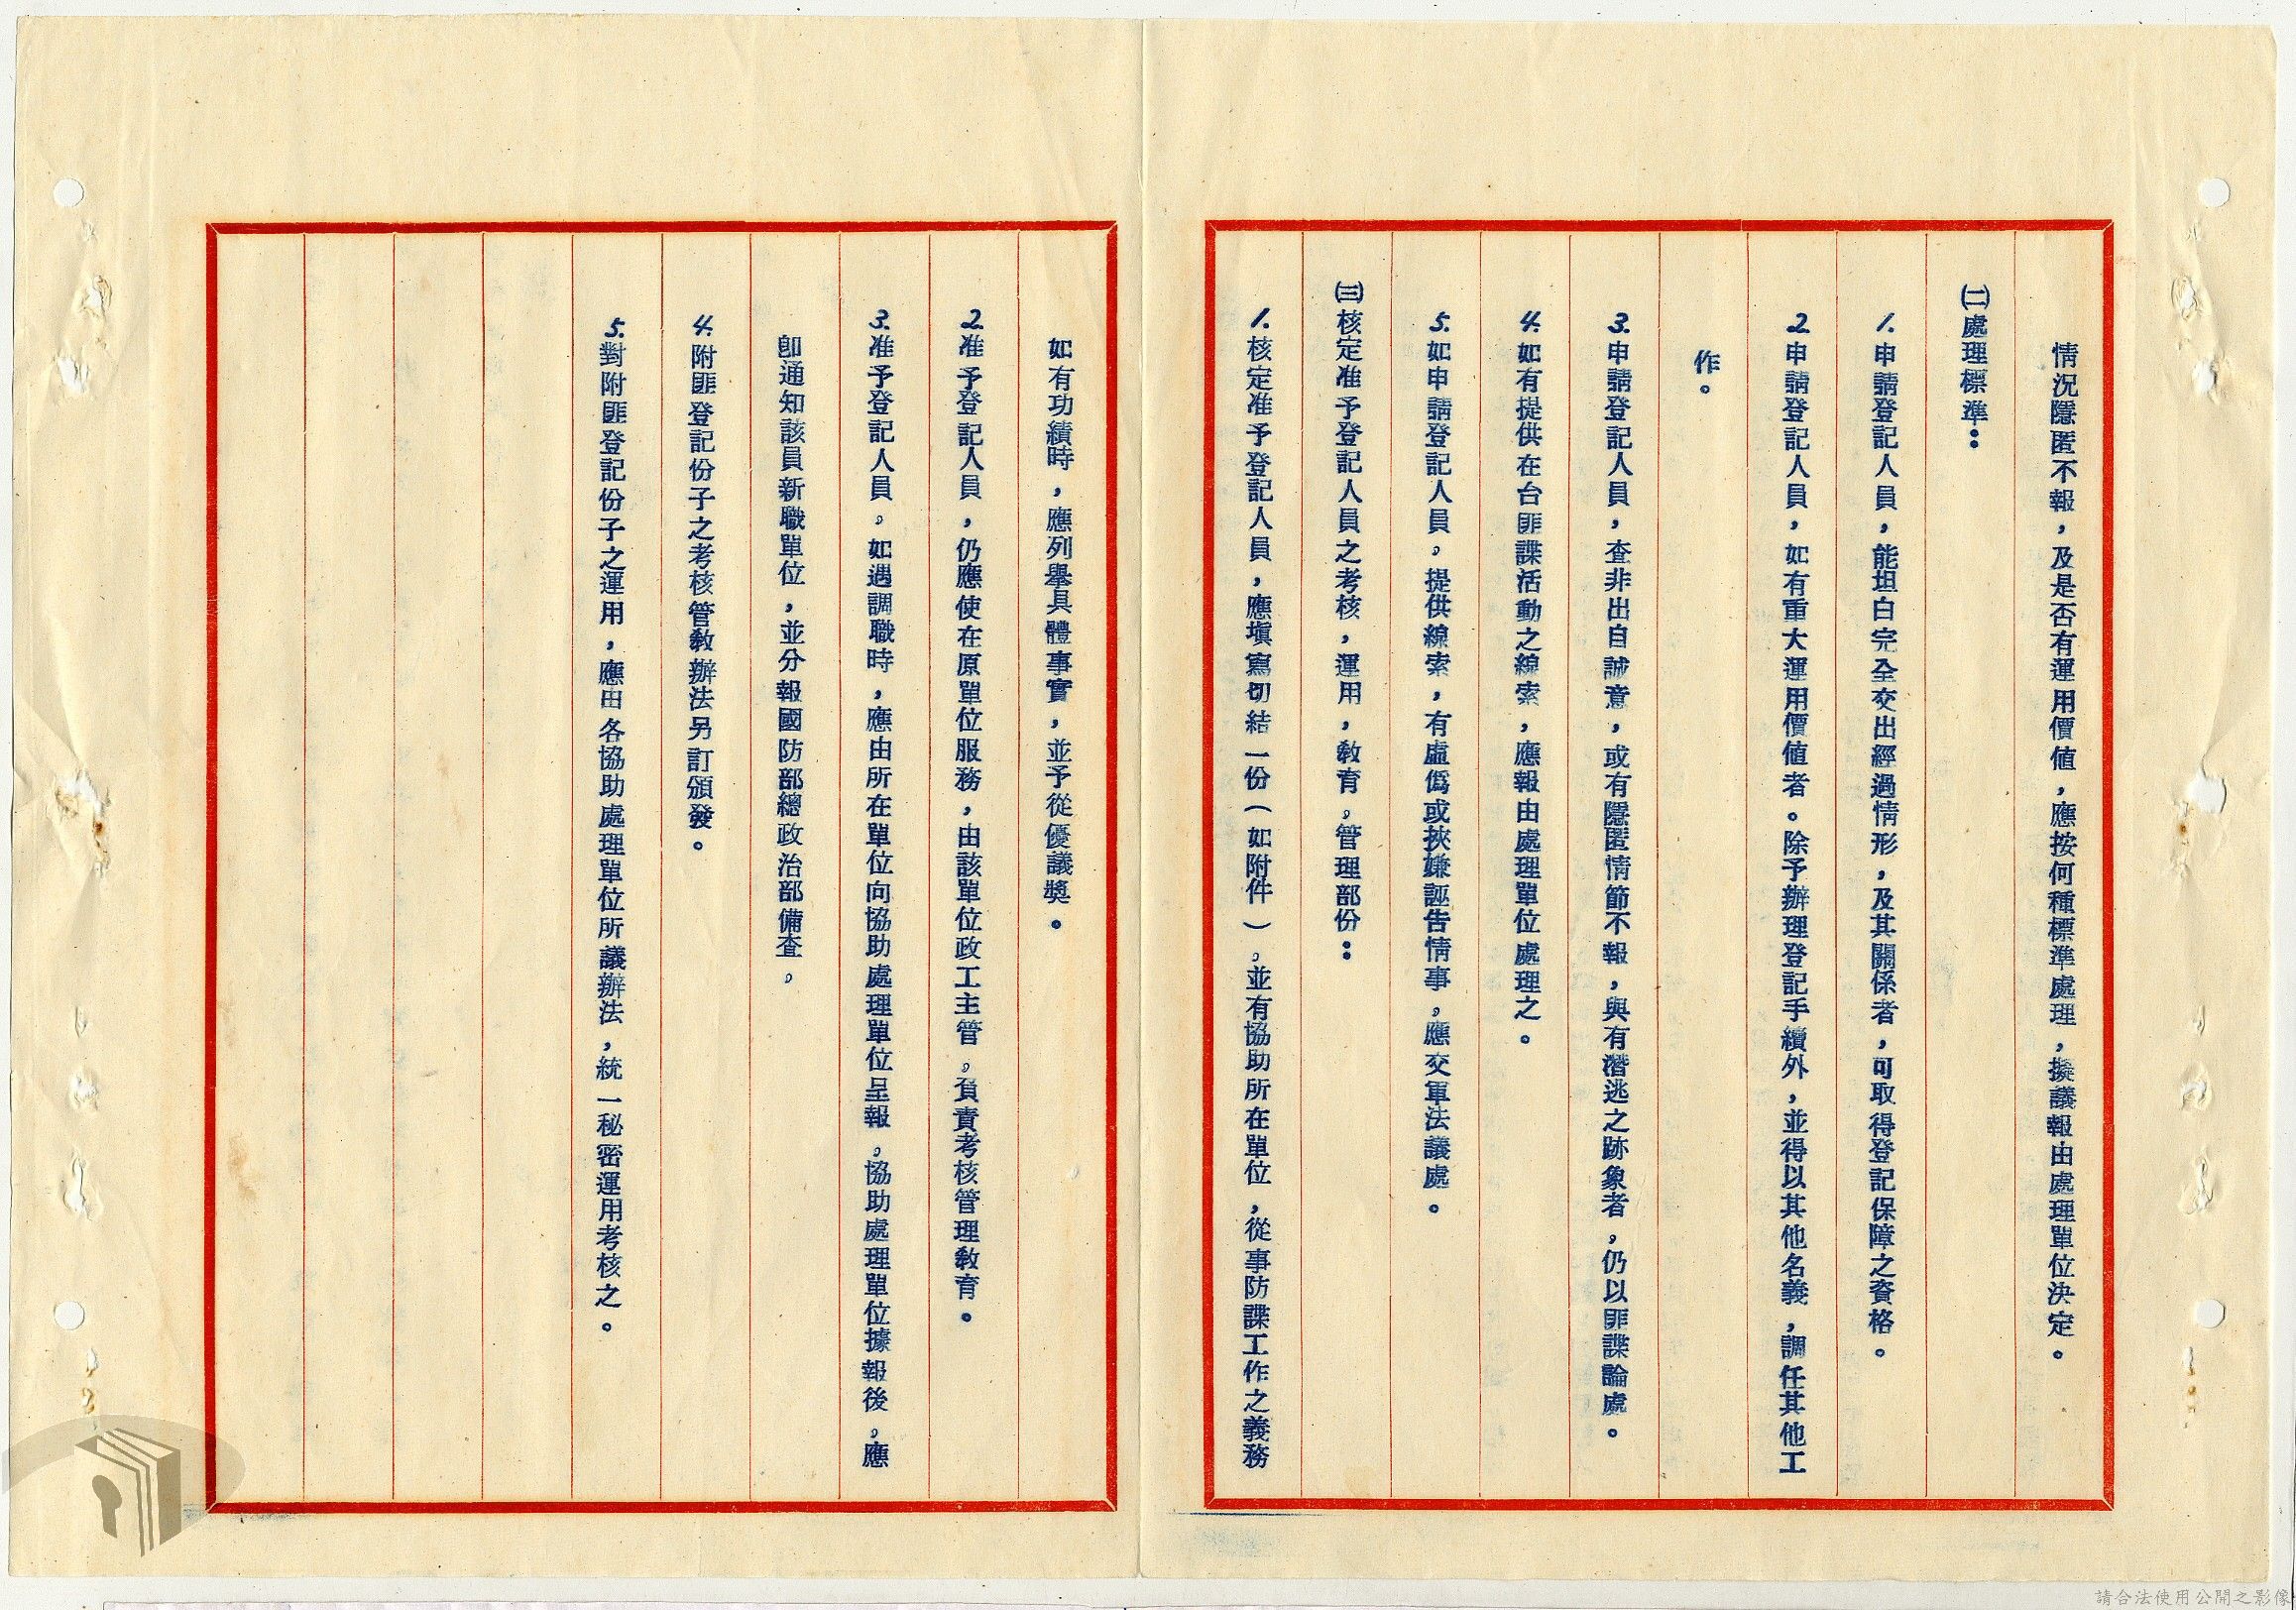 情況隱匿不報，及是否有運用價值，應按何種標準處理，擬議報由處理單位決定。
㈡處理標準：
1.申請登記人員，能坦白完全交出經過情形，及其關係者，可取得登記保障之資格。
2.申請登記人員，如有重大運用價值者。除予辦理登記手續外，並得以其他名義，調任其他工
作。
3.申請登記人員，查非出自誠意，或有隱匿情節不報，與有潛逃之跡象者，仍以匪諜論處。
4.如有提供在台匪諜活動之線索，應報由處理單位處理之。
5.如申請登記人員。提供線索，有虛僞或挾嫌誣告情事，應交軍法議處。
㈢核定准予登記人員之考核，運用，教育，管理部份：
1.核定准予登記人員，應塡寫切結一份（如附件），並有協助所在單位，從事防諜工作之義務
如有功績時，應列舉具體事實，並予從優議獎。
2.准予登記人員，仍應使在原單位服務，由該單位政工主管，負責考核管理教育。
3.准予登記人員。如遇調職時，應由所在單位向協助處理單位呈報，協助處理單位據報後，應
卽通知該員新職單位，並分報國防部總政治部備查，
4.附匪登記份子之考核管教辦法另訂頒發。
5.對附匪登記份子之運用，應由各協助處理單位所議辦法，統一秘密運用考核之。
請合法使用公開之影像